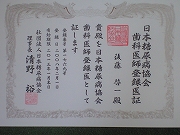 日本糖尿病協会
歯科医師登録医証
後藤 啓一殿
貴殿を日本糖尿病協会
歯科医師登録医として
証します
社団法人日本糖尿病協会
理事長 清野 裕